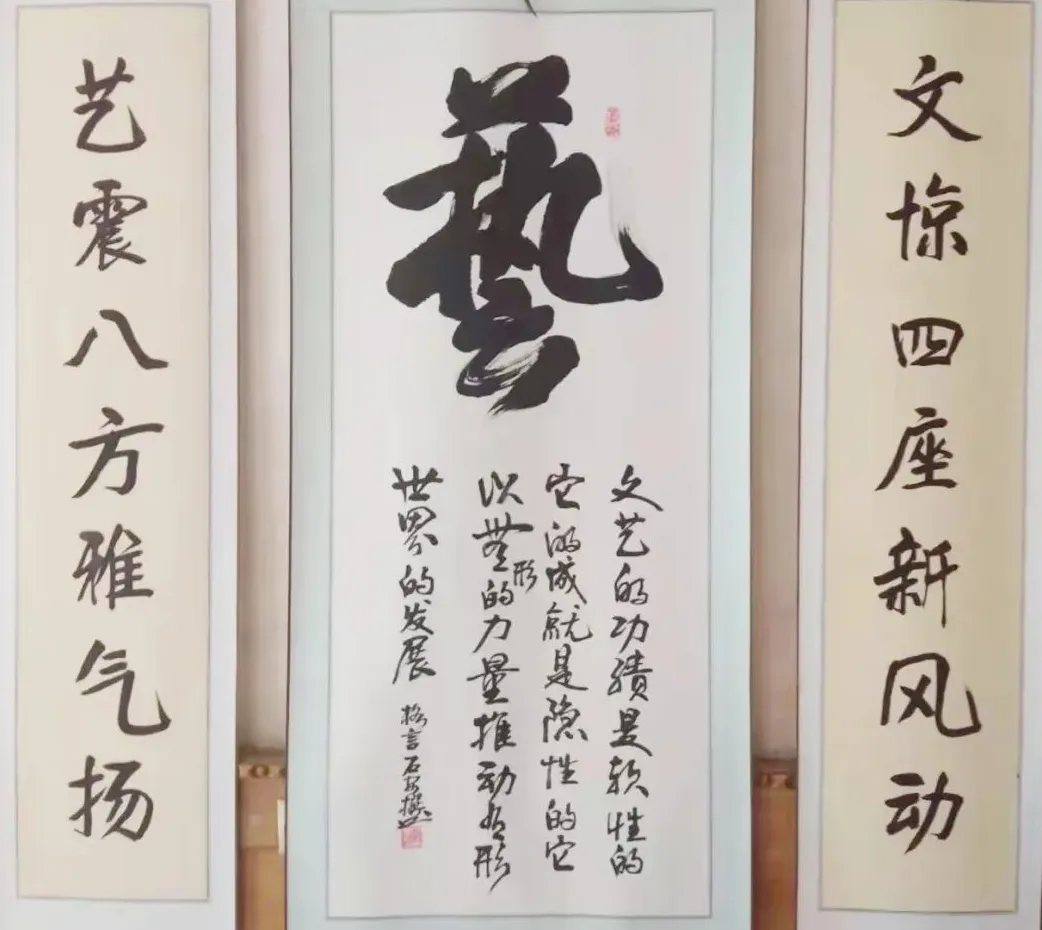 文惊四座新风动
藝
文艺的功绩是软性的
它的成就是隐性的它
以無形的力量推动有形
世界的发展
格言石安撰
艺震八方雅气扬